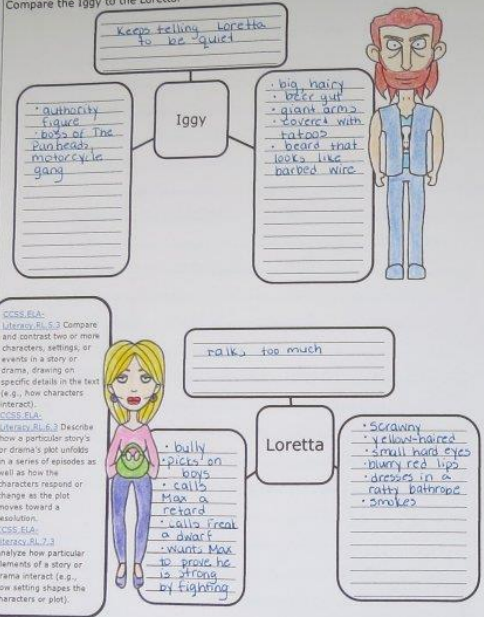 Compare the Iggy to the Loretta.
Keeps telling Loretta
to be quiet
• authority
figure
• boss of The
Panheads
motorcycle
gang
Iggy
• big, hairy
• beer gut
• giant arms
• covered with
tatoos
• beard that
looks like
barbed wire
CCSS.ELA-
Literacy.RL.5.3 Compare
and contrast two or more
characters, settings, or
events in a story or
drama, drawing on
specific details in the text
(e.g., how characters
interact).
CCSS.ELA-
Literacy.RL.6.3 Describe
how a particular story's
or drama's plot unfolds
in a series of episodes as
well as how the
characters respond or
change as the plot
moves toward a
resolution.
CCSS.ELA-
Literacy.RL.7.3
Analyze how particular
elements of a story or
drama interact (e.g.,
how setting shapes the
characters or plot).
talks too much
• bully
• picks on
boys
• calls
Max a
retard
• calls Freak
a dwarf
• wants Max
to prove he
is strong
by fighting
Loretta
• scrawny
• yellow-haired
• small hard eyes
• blurry red lips
• dresses in a
ratty bathrobe
• smokes